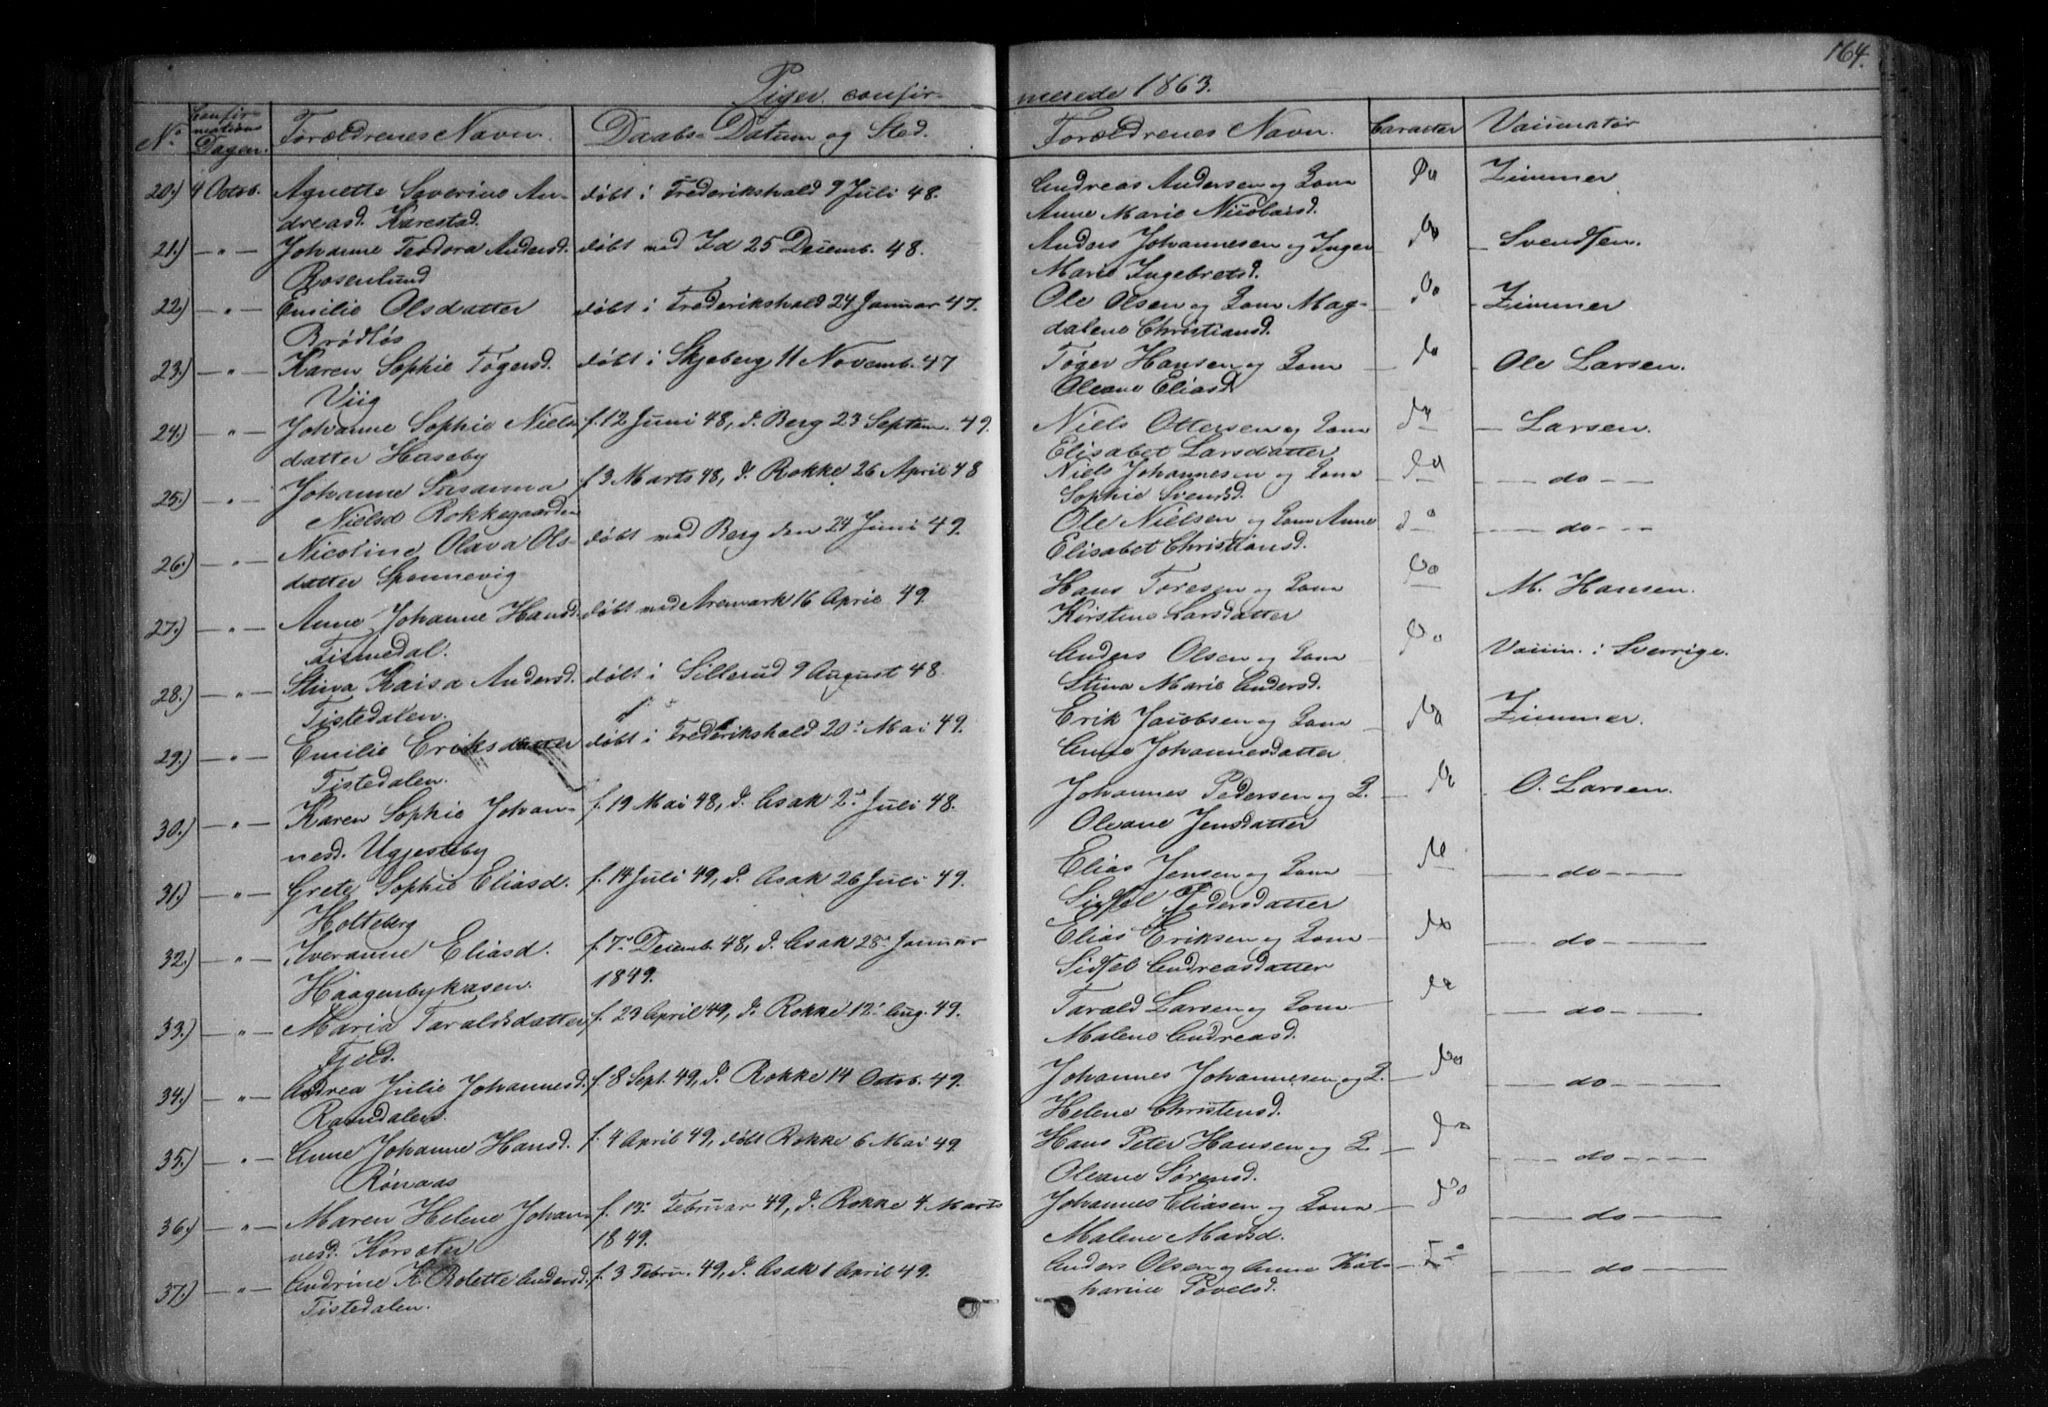 164.
Piger confirmerede 1863.
No. Confirmations Dagen. Forældrenes Navn. Daabs Datum og Sted. Forældrenes Navn. Caracter Vaccinatør
20.) 4 Octob. Agnette Severine An- døbt i Frederikshald 9 Juli 48. Andreas Andersen og Kone Zimmer
dreasd. Karrestad. Anne Marie Nicolaisd.
21.) — " — Johanne Teodora Andersd. døbt ved Id 25 Decemb. 48. Anders Johannesen og Inger — Svendsen.
Rosenlund Marie Ingebretsd.
22.) — " — Emilie Olsdatter døbt i Frederikshald 24 Januar 47. Ole Olsen og Kone Mag- Zimmer
Brødløs dalene Christiansd.
23.) — " — Karen Sophie Tøgersd. døbt i Skjeberg 11 Novemb. 47 Tøger Hansen og Kone Ole Larsen.
Viig Oleane Eliasd.
24.) — " — Johanne Sophie Niels f. 12 Juni 48, d. Berg 23 Septem. 49. Niels Ottersen og Kone — Larsen.
datter Haseby Elisabet Larsdatter
25.) — " — Johanne Susanna f 3 Marts 48, d. Rokke 26 April 48 Niels Johannesen og Kone — do —
Nielsd Rokkegaarden Sophie Svendsd.
26.) — " — Nicoline Olava Ols- døbt ved Berg den 24 Juni 49. Ole Nielsen og Kone Anne — do —
datter Sponnevig Elisabet Christiansd.
27.) — " — Anne Johanne Hansd. døbt ved Aremark 16 April 49. Hans Toresen og Kone M. Hansen.
Kirstine Larsdatter
28.) — " — Stina Kaisa Andersd. døbt i Sillerud 9 August 48. Anders Olsen og Kone Vaccin. i Sverrige.
Tistedalen. Stina Marie Andersd.
29.) — " — Emilie Eriksdatter døbt i Frederikshald 20. Mai 49. Erik Jacobsen og Kone Zimmer.
Tistedalen. Anne Johannesdatter
30.) — " — Karen Sophie Johan- f. 19 Mai 48, d. Asak 2. Juli 48. Johannes Pedersen og K. O. Larsen.
nesd. Ugjesteby Oleane Jensdatter
31.) — " — Grete Sophie Eliasd. f. 14 Juli 49, d. Asak 26 Juli 49. Elias Jensen og Kone — do —
Holteberg Sidsel Pedersdatter
32.) — " — Iveranne Eliasd. f. 7. Decemb. 48, d. Asak 28. Januar Elias Eriksen og Kone — do —
Haagenbykasen. 1849. Sidsel Andreasdatter
33.) — " — Maria Taraldsdatter f. 23 April 49, d. Rokke 12. Aug. 49. Tarald Larsen og Kone — do —
Fjeld. Malene Andreasd.
34.) — " — Andrea Julie Johannesd. f. 8 Sept. 49, d. Rokke 14 Octob. 49. Johannes Johannesen og K. — do —
Ramdalen. Helene Christensd.
35.) — " — Anne Johanne Hansd. f. 4 April 49, døbt Rokke 6 Mai 49. Hans Peter Hansen og K. — do —
Rønaas Oleane Sørensd.
36.) — " — Maren Helene Johan f. 13. Februar 49, d. Rokke 4 Marts Johannes Eliasen og Kone — do —
nesd. Korsæter 1849. Malene Madsd.
37.) — " — Andrine K. Rolette Andersd. f. 3 Febru. 49, d. Asak 1 April 49. Anders Olsen og Anne Kat- — do —
Tistedalen. harine Povelsd.